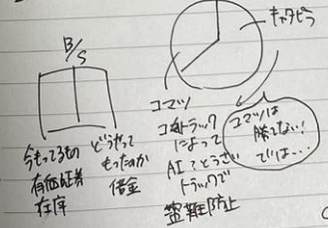 B/S
今もってるもの
有価証券
在庫
どうやって
もったのか
借金
キャタピラ
コマツ
トラック
によって
AI?とうさい
トラックで
盗難防止
コマツは
勝てない!
では・・・